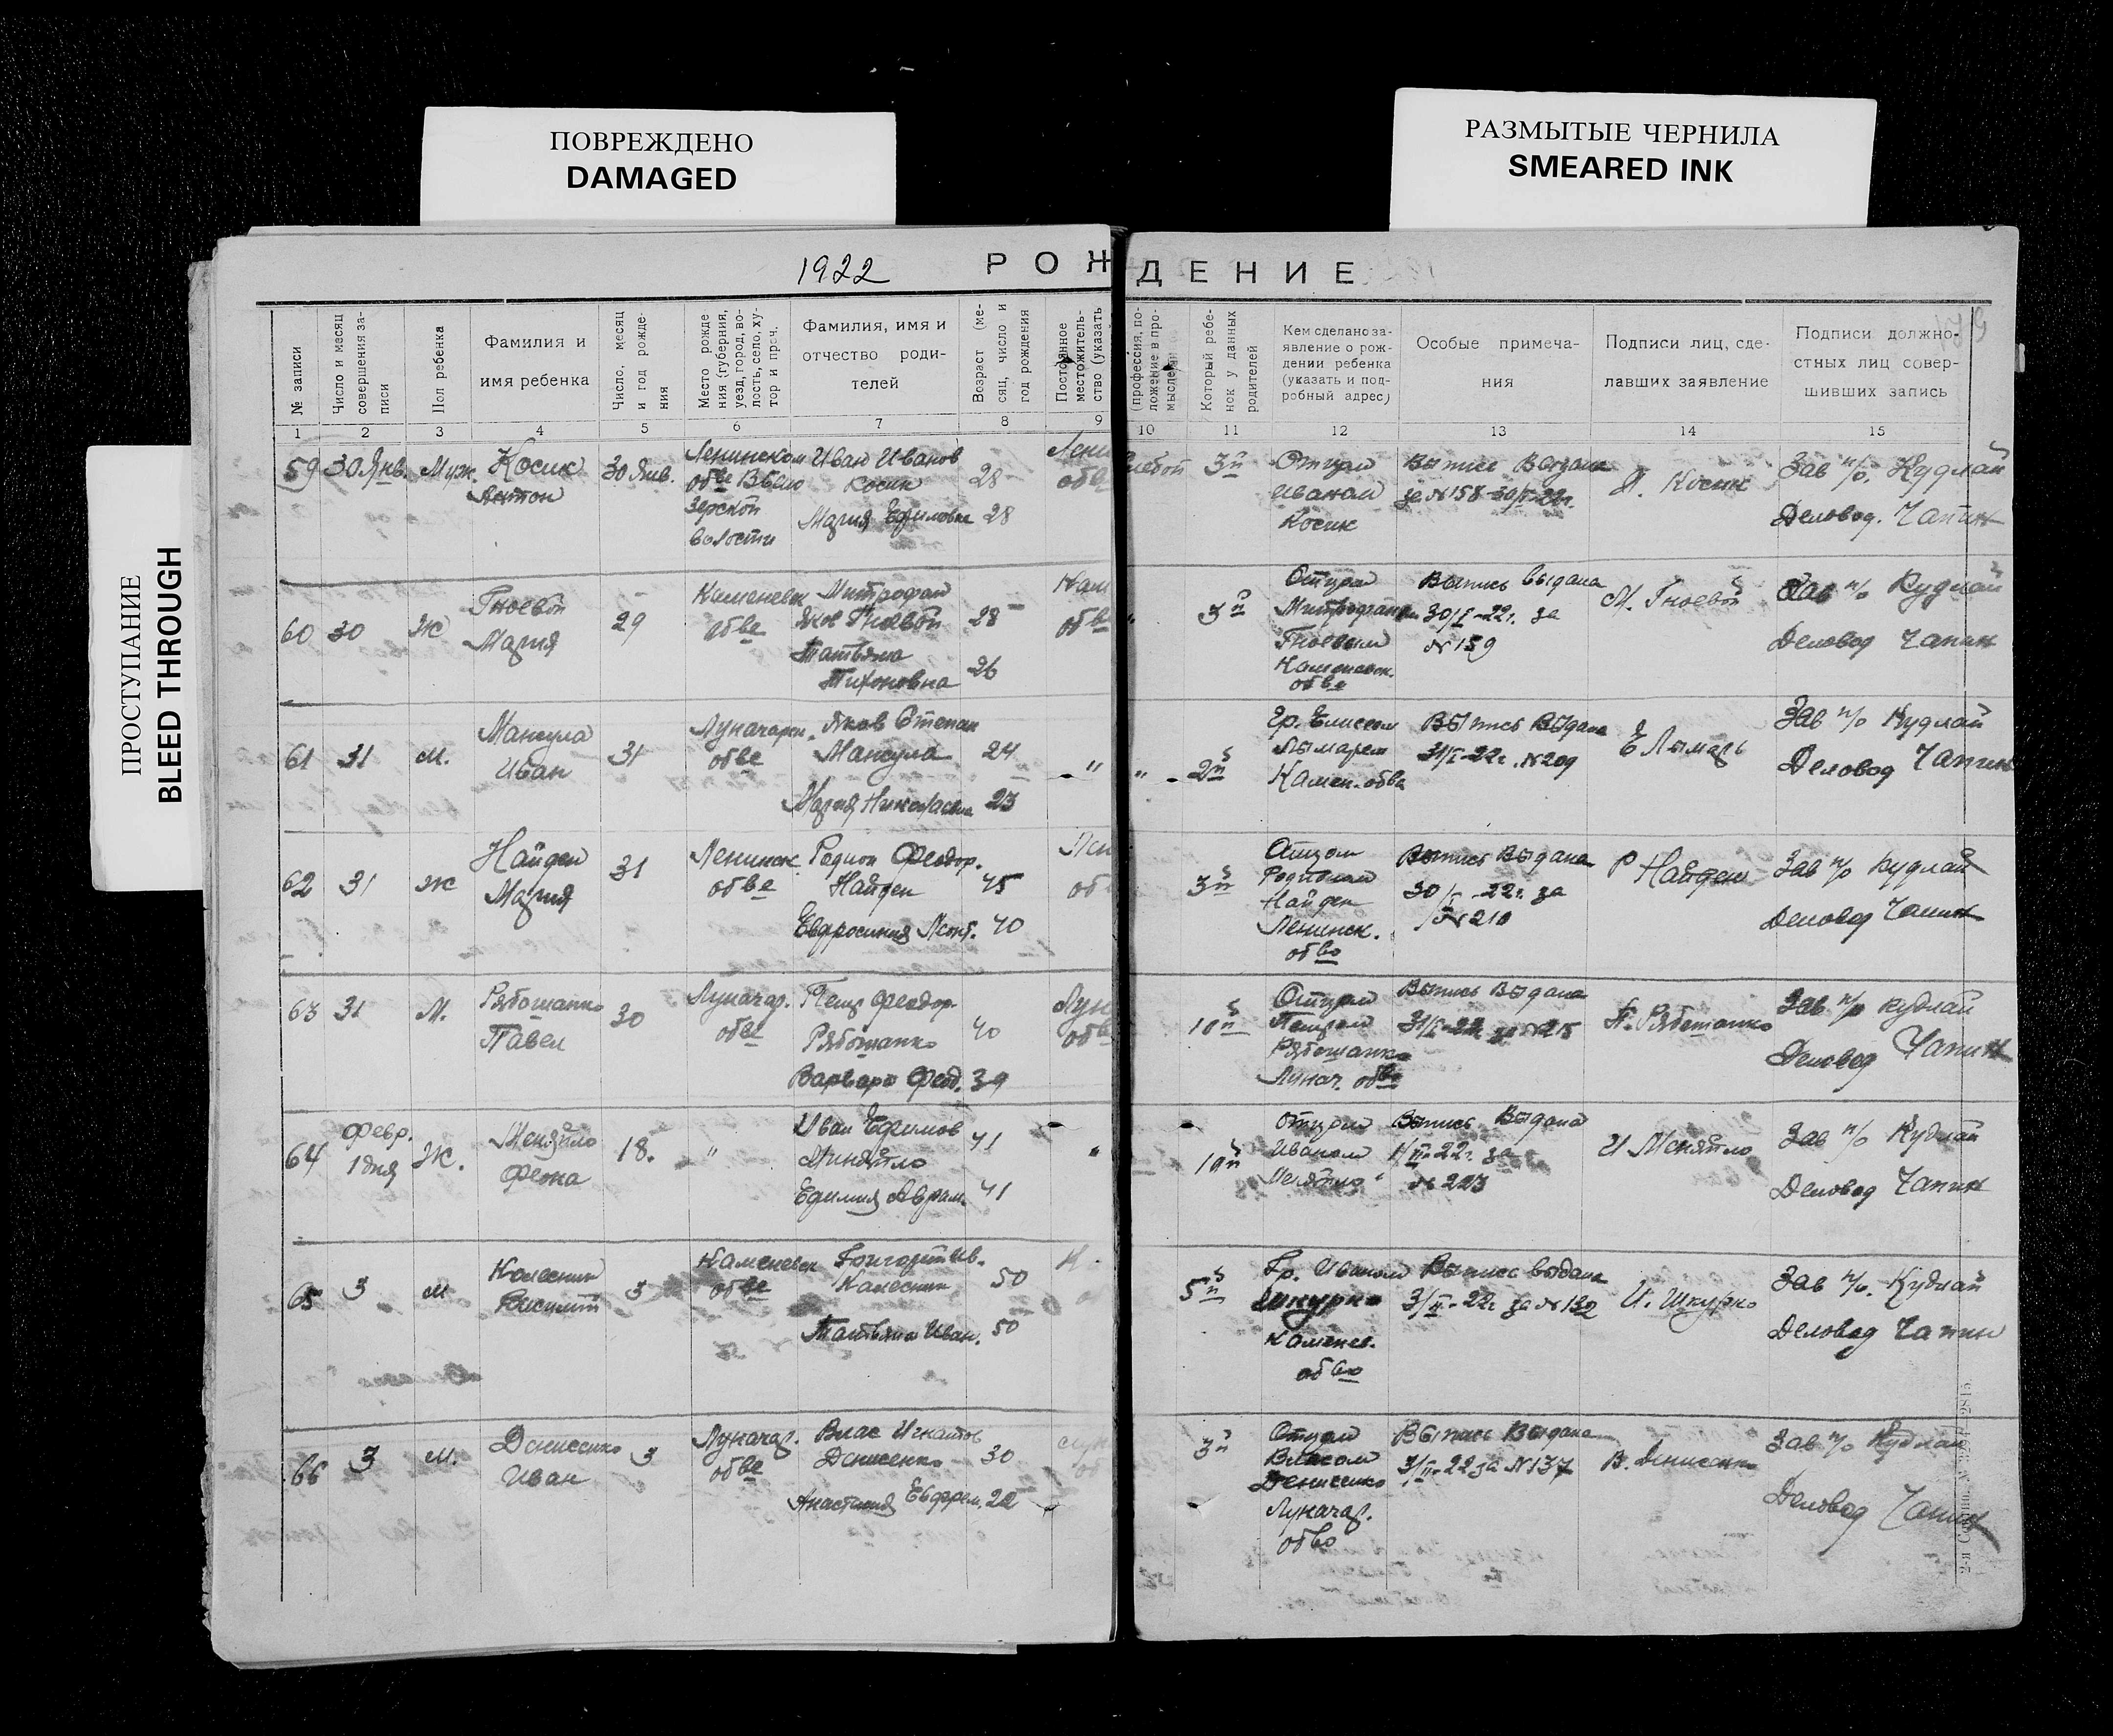 ПОВРЕЖДЕНО
DAMAGED
РАЗМЫТЫЕ ЧЕРНИЛА
SMEARED INK
ПРОСТУПАНИЕ
BLEED THROUGH
1922
РОЖДЕНИЕ
№ записи
Число и месяц
совершения за-
писи
Пол ребенка
Фамилия и
имя ребенка
Число, месяц
и год рожде-
ния
Место рожде
ния (губерния,
уезд, город, во-
лость, село, ху-
тор и проч.
Фамилия, имя и
отчество роди-
телей
Возраст (ме-
сяц, число и
год рождения
Постоянное
местожитель-
ство (указать
(профессия, по-
ложение в про-
мысле
Который ребе-
нок у данных
родителей
Кем сделано за-
явление о рож-
дении ребенка
(указать и под-
робный адрес)
Особые примеча-
ния
Подписи лиц, сде-
лавших заявление
Подписи должно-
стных лиц совер-
шивших запись
1 2 3 4 5 6 7 8 9 10 11 12 13 14 15
59 30 Янв. Муж. Косик
Антон
30 Янв.
Ленинском
обве Вбело
зерской
волости
Иван Иванов
Косик 28
Мария Ефимовна 28
Лени
обв
3й
Отцом
Иваном
Косик
Выпись Выдана
за №158-30/I-22г.
Косик
Зав п/о. Кудлай
Деловод. Чапин
60 30 Ж
Гноевой
Мария
29
Каменевск
обве
Митрофан
Яков Гноевой 28
Татьяна
Тихоновна 26
Кам
обв
3й
Отцом
Митрофаном
Гноевым
Каменевск.
обве
Выпись выдана
30/I-22г. за
№159
М. Гноевой
Зав п/о Кудлай
Деловод Чапин
61 31 М.
Мансула
Иван
31
Луначарск.
обве
Яков Степан
Мансула 24
Мария Николаевна 23
" " 2й
Гр. Елисеем
Лымарем
Камен. обва
Выпись Выдана
31/I-22г. №209
Е Лымарь
Зав п/о Кудлай
Деловод Чапин
62 31 Ж
Найден
Мария
31
Ленинск.
обве
Родион Феодор.
Найден 45
Евфросиния Леонт. 40
Лен
об
3й
Отцом
Родионом
Найден
Ленинск.
обво
Выпись Выдана
30/I-22г. за
№210
Р Найден
Зав п/о Кудлай
Деловод Чапин
63 31 М.
Рябошапко
Павел
30
Луначар.
обве
Петр Феодор.
Рябошапко 40
Варвара Феод. 39
Лун
обв
10й
Отцом
Петром
Рябошапко
Лунач. обве
Выпись Выдана
31/I-22 за №215
П. Рябошапко
Зав п/о Кудлай
Деловод Чапин
64 Февр.
1 дня
Ж.
Меняйло
Феона
18. "
Иван Ефимов 41
Миняйло
Ефимия Аврам. 41
" 10й
Отцом
Иваном
Меняйло
Выпись Выдана
1/II-22г. за
№ 223
И Меняйло
Зав п/о Кудлай
Деловод Чапин
65 3 М
Колесник
3
Каменевск
обве
Ив.
Колесник 50
Татьяна Иван. 50
5й
Гр. Иваном
Шкурко
Каменев.
обво
Выпись выдана
3/II-22г за №132
И. Шкурко
Зав п/о. Кудлай
Деловод Чапин
66 3 М.
Денисенко
Иван
3
Луначар.
обве
Влас Игнатов
Денисенко 30
Анастасия Евфрем. 22
3й
Отцом
Власом
Денисенко
Луначар.
обво
Выпись Выдана
3/II-22 за №137
В. Денисенко
Зав п/о Кудлай
Деловод Чапин